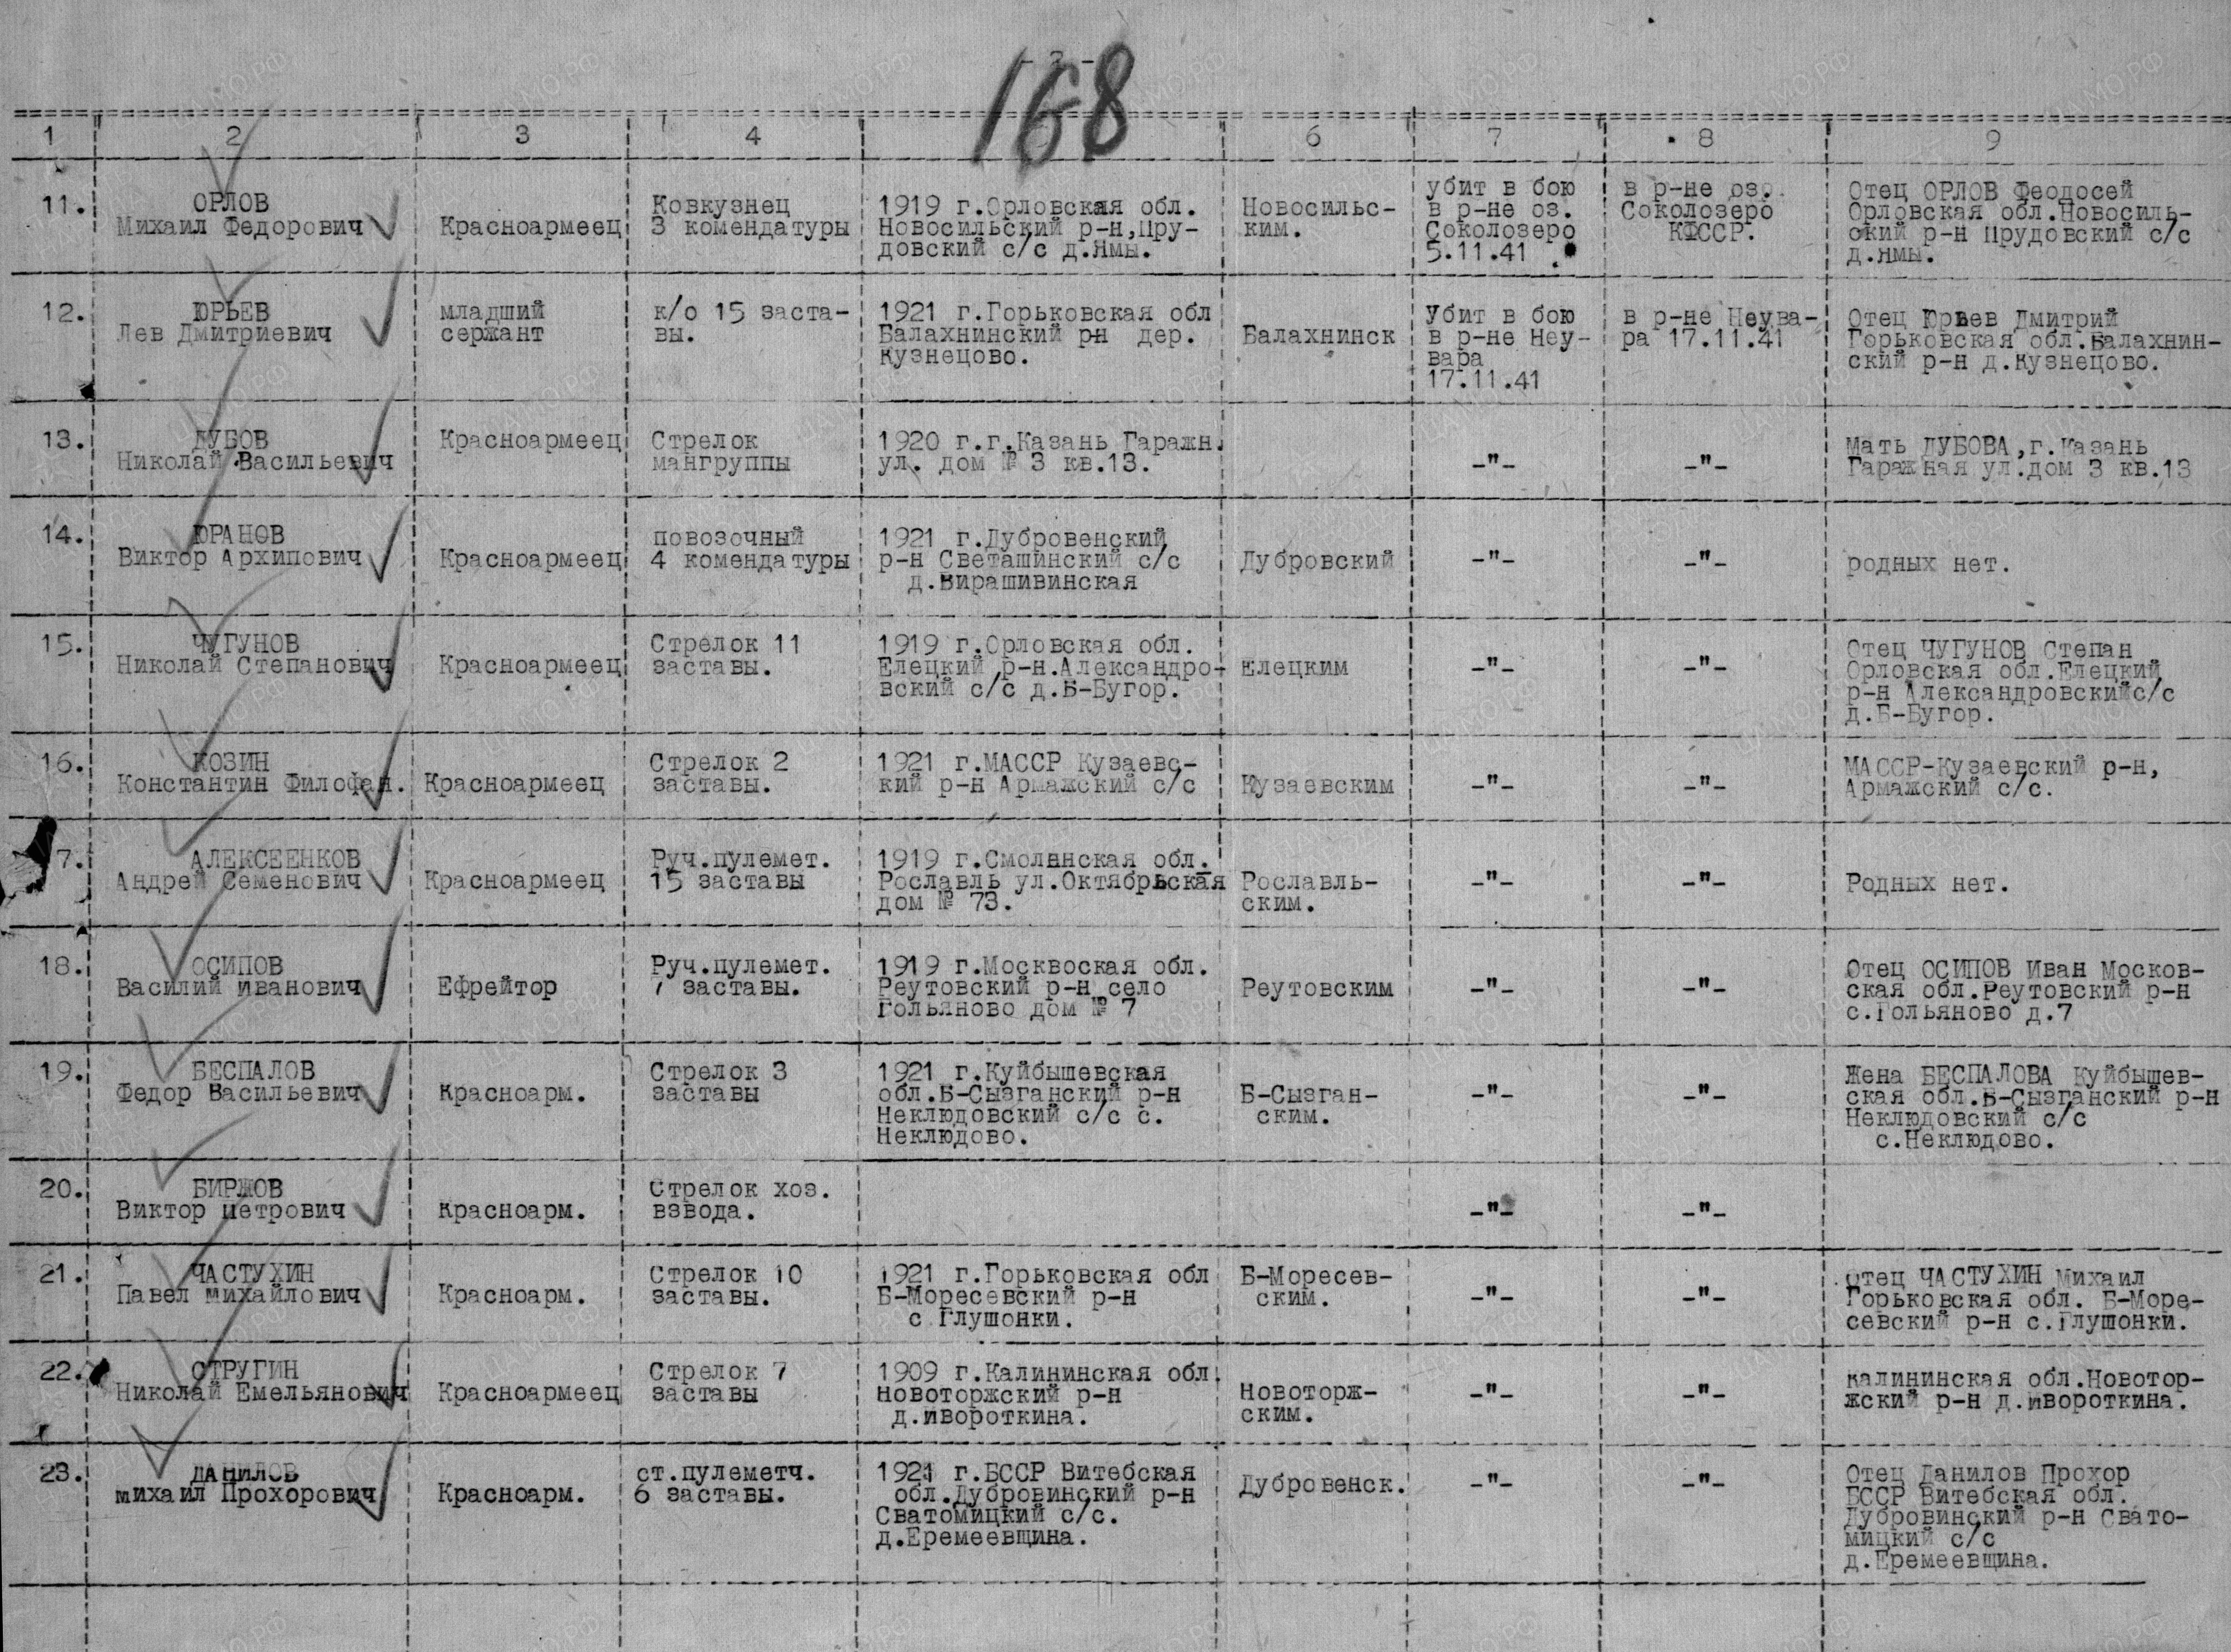 - 2 -
168
1 2 3 4 6 7 8 9
11. ОРЛОВ
Михаил Федорович
Красноармеец
Ковкузнец
3 комендатуры
1919 г.Орловская обл.
Новосильский р-н,Пру-
довский с/с д.Ямы.
Новосильс-
ким.
убит в бою
в р-не оз.
Соколозеро
5.11.41 .
в р-не оз.
Соколозеро
КФССР.
Отец ОРЛОВ Феодосей
Орловская обл.Новосиль-
ский р-н Прудовский с/с
д.Ямы.
12. ЮРЬЕВ
Лев Дмитриевич
младший
сержант
к/о 15 заста-
вы.
1921 г.Горьковская обл
Балахнинский р-н дер.
Кузнецово.
Балахнинск
Убит в бою
в р-не Неу-
вара
17.11.41
в р-не Неува-
ра 17.11.41
Отец Юрьев Дмитрий
Горьковская обл.Балахнин-
ский р-н д.Кузнецово.
13. ДУБОВ
Николай Васильевич
Красноармеец
Стрелок
мангруппы
1920 г.г.Казань Гаражн.
ул. дом № 3 кв.13.
-"-
-"-
мать ДУБОВА,г.Казань
Гаражная ул.дом 3 кв.13
14. ЮРАНОВ
Виктор Архипович
Красноармеец
повозочный
4 комендатуры
1921 г.Дубровенский
р-н Светашинский с/с
д.Вирашивинская
Дубровский
-"-
-"-
родных нет.
15. ЧУГУНОВ
Николай Степанович
Красноармеец
Стрелок 11
заставы.
1919 г.Орловская обл.
Елецкий р-н.Александро-
вский с/с д.Б-Бугор.
Елецким
-"-
-"-
Отец ЧУГУНОВ Степан
Орловская обл.Елецкий
р-н Александровскийс/с
д.Б-Бугор.
16. КОЗИН
Константин Филофан.
Красноармеец
Стрелок 2
заставы.
1921 г.МАССР Кузаевс-
кий р-н Армажский с/с
Кузаевским
-"-
-"-
МАССР-Кузаевский р-н,
Армажский с/с.
7. АЛЕКСЕЕНКОВ
Андрей Семенович
Красноармеец
Руч.пулемет.
15 заставы
1919 г.Смолянская обл.
Рославль ул.Октябрьская
дом № 73.
Рославль-
ским.
-"-
-"-
Родных нет.
18. ОСИПОВ
Василий Иванович
Ефрейтор
Руч.пулемет.
7 заставы.
1919 г.Москвоская обл.
Реутовский р-н село
Гольяново дом № 7
Реутовским
-"-
-"-
Отец ОСИПОВ Иван Москов-
ская обл.Реутовский р-н
с.Гольяново д.7
19. БЕСПАЛОВ
Федор Васильевич
Красноарм.
Стрелок 3
заставы
1921 г.Куйбышевская
обл.Б-Сызганский р-н
Неклюдовский с/с с.
Неклюдово.
Б-Сызган-
ским.
-"-
-"-
Жена БЕСПАЛОВА Куйбышев-
ская обл.Б-Сызганский р-н
Неклюдовский с/с
с.Неклюдово.
20. БИРЖОВ
Виктор Петрович
Красноарм.
Стрелок хоз.
взвода.
-"-
-"-
21. ЧАСТУХИН
Павел Михайлович
Красноарм.
Стрелок 10
заставы.
1921 г.Горьковская обл
Б-Моресевский р-н
с Глушонки.
Б-Моресев-
ским.
-"-
-"-
Отец ЧАСТУХИН Михаил
Горьковская обл. Б-Море-
севский р-н с.Глушонки.
22. СТРУГИН
Николай Емельянович
Красноармеец
Стрелок 7
заставы
1909 г.Калининская обл.
Новоторжский р-н
д.Ивороткина.
Новоторж-
ским.
-"-
-"-
Калининская обл.Новотор-
жский р-н д.Ивороткина.
23. ДАНИЛОВ
Михаил Прохорович
Красноарм.
ст.пулеметч.
6 заставы.
1921 г.БССР Витебская
обл.Дубровинский р-н
Сватомицкий с/с.
д.Еремеевщина.
Дубровенск.
-"-
-"-
Отец Данилов Прохор
БССР Витебская обл.
Дубровинский р-н Свато-
мицкий с/с
д.Еремеевщина.